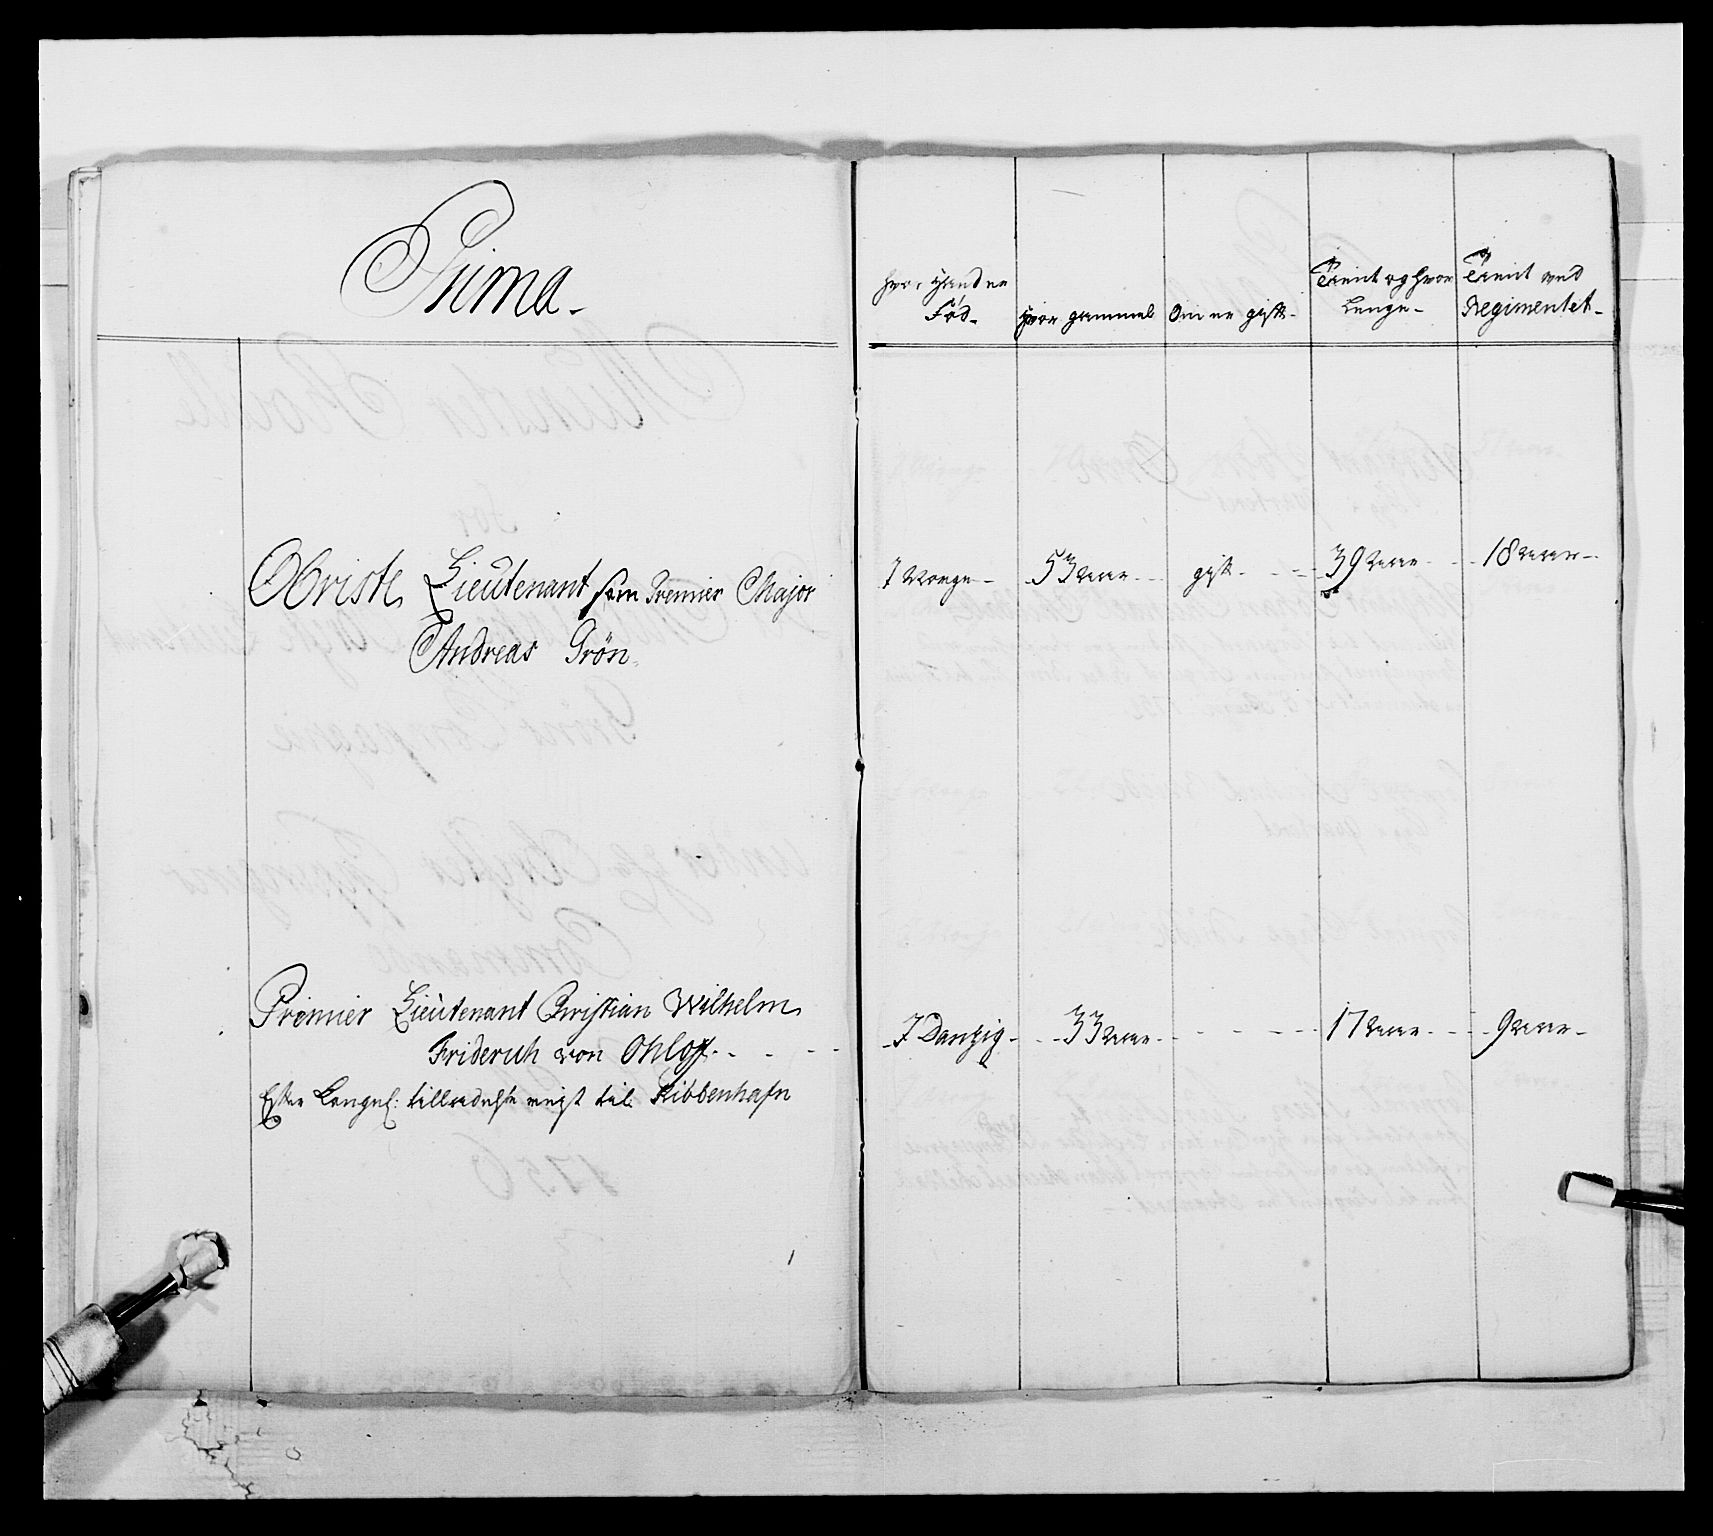 Prima.
hvor hand er
Fød.
Hvor gammel
Om er gift.
Tient og hvor
Lenge.
Tient ved
Regimentet.
Obriste Lieutenant som Premier Major
Andreas Grön.
I Norge 53 Aar gift. 39 Aar 18 Aar
Premier Lieutenant Christian Wilhelm
Friderich von Ohloff.
I Danzig 33 Aar 17 Aar 9 Aar
Efter Kongel: tilladelse reist til Kibbenhafn